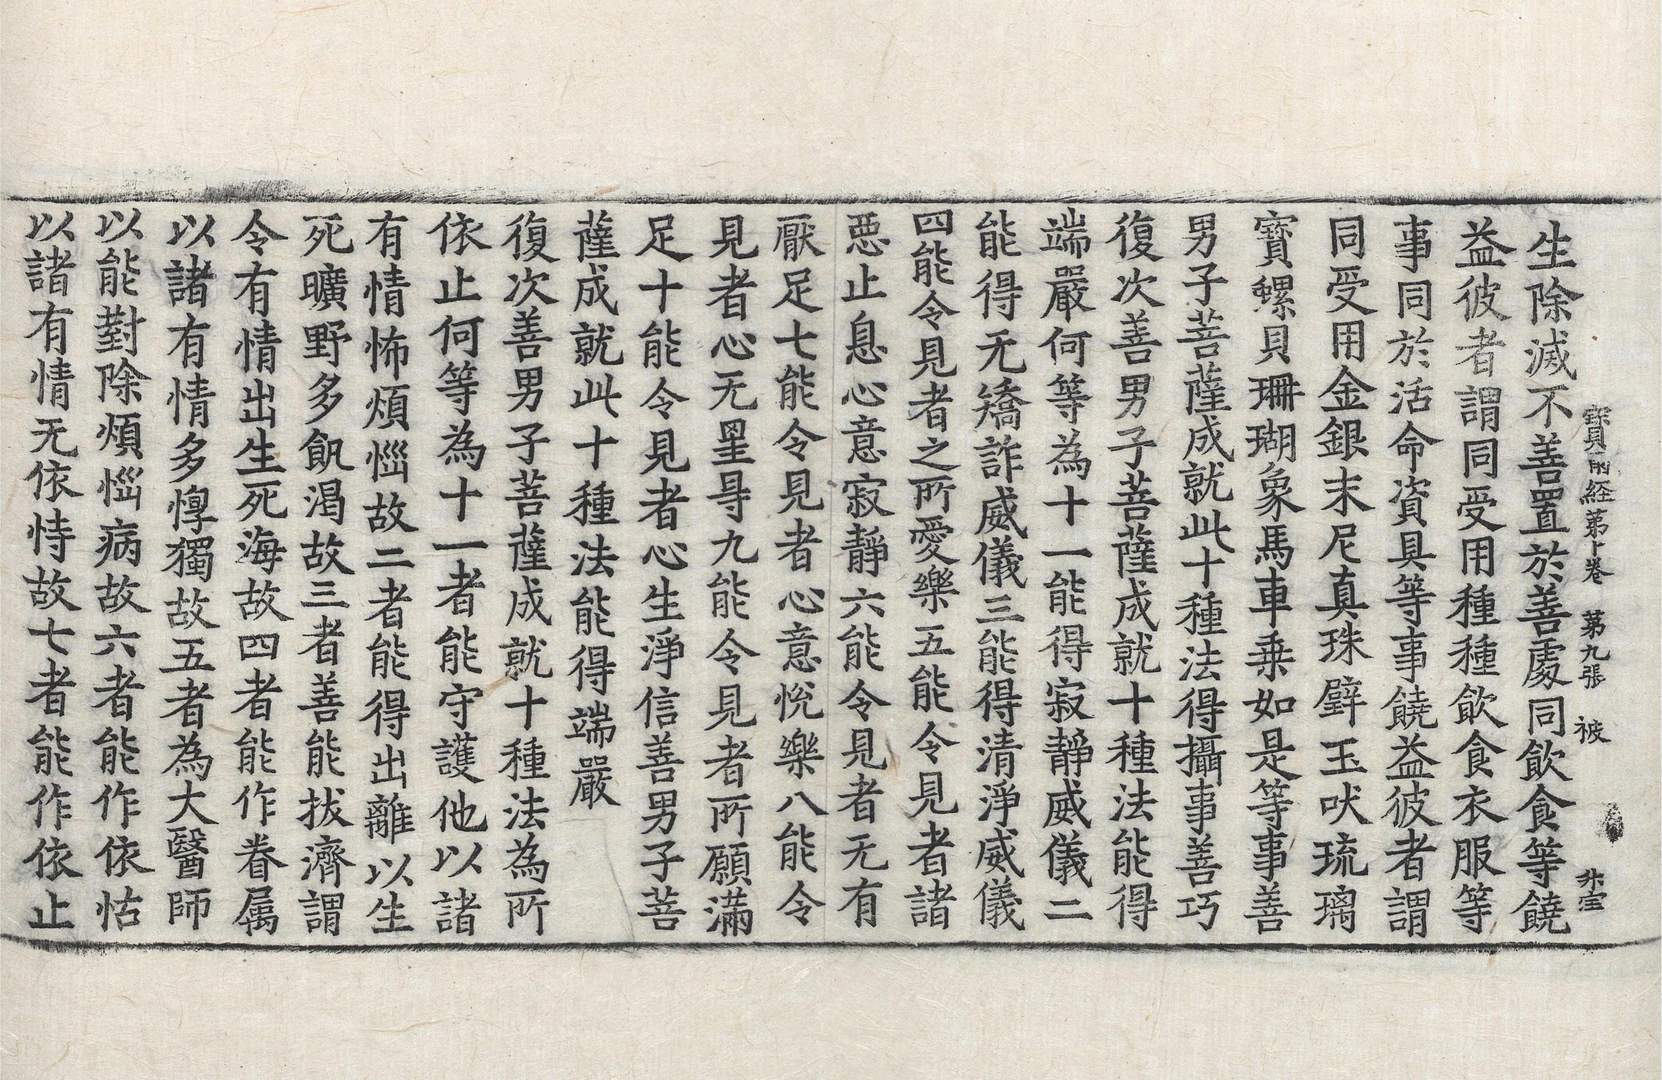 寶雨経第十卷 第九張 被
生除滅不善置於善處同飲食等饒
益彼者謂同受用種種飲食衣服等
事同於活命資具等事饒益彼者謂
同受用金銀末尼真珠璧玉吠琉璃
寶螺貝珊瑚象馬車乗如是等事善
男子菩薩成就此十種法得攝事善巧
復次善男子菩薩成就十種法能得
端嚴何等為十一能得寂靜威儀二
能得无矯詐威儀三能得清淨威儀
四能令見者之所愛樂五能令見者諸
惡止息心意寂靜六能令見者无有
厭足七能令見者心意悅樂八能令
見者心无罣㝵九能令見者所願滿
足十能令見者心生淨信善男子菩
薩成就此十種法能得端嚴
復次善男子菩薩成就十種法為所
依止何等為十一者能守護他以諸
有情怖煩惱故二者能得出離以生
死曠野多飢渴故三者善能拔濟謂
令有情出生死海故四者能作眷属
以諸有情多惸獨故五者為大醫師
以能對除煩惱病故六者能作依怙
以諸有情无依恃故七者能作依止